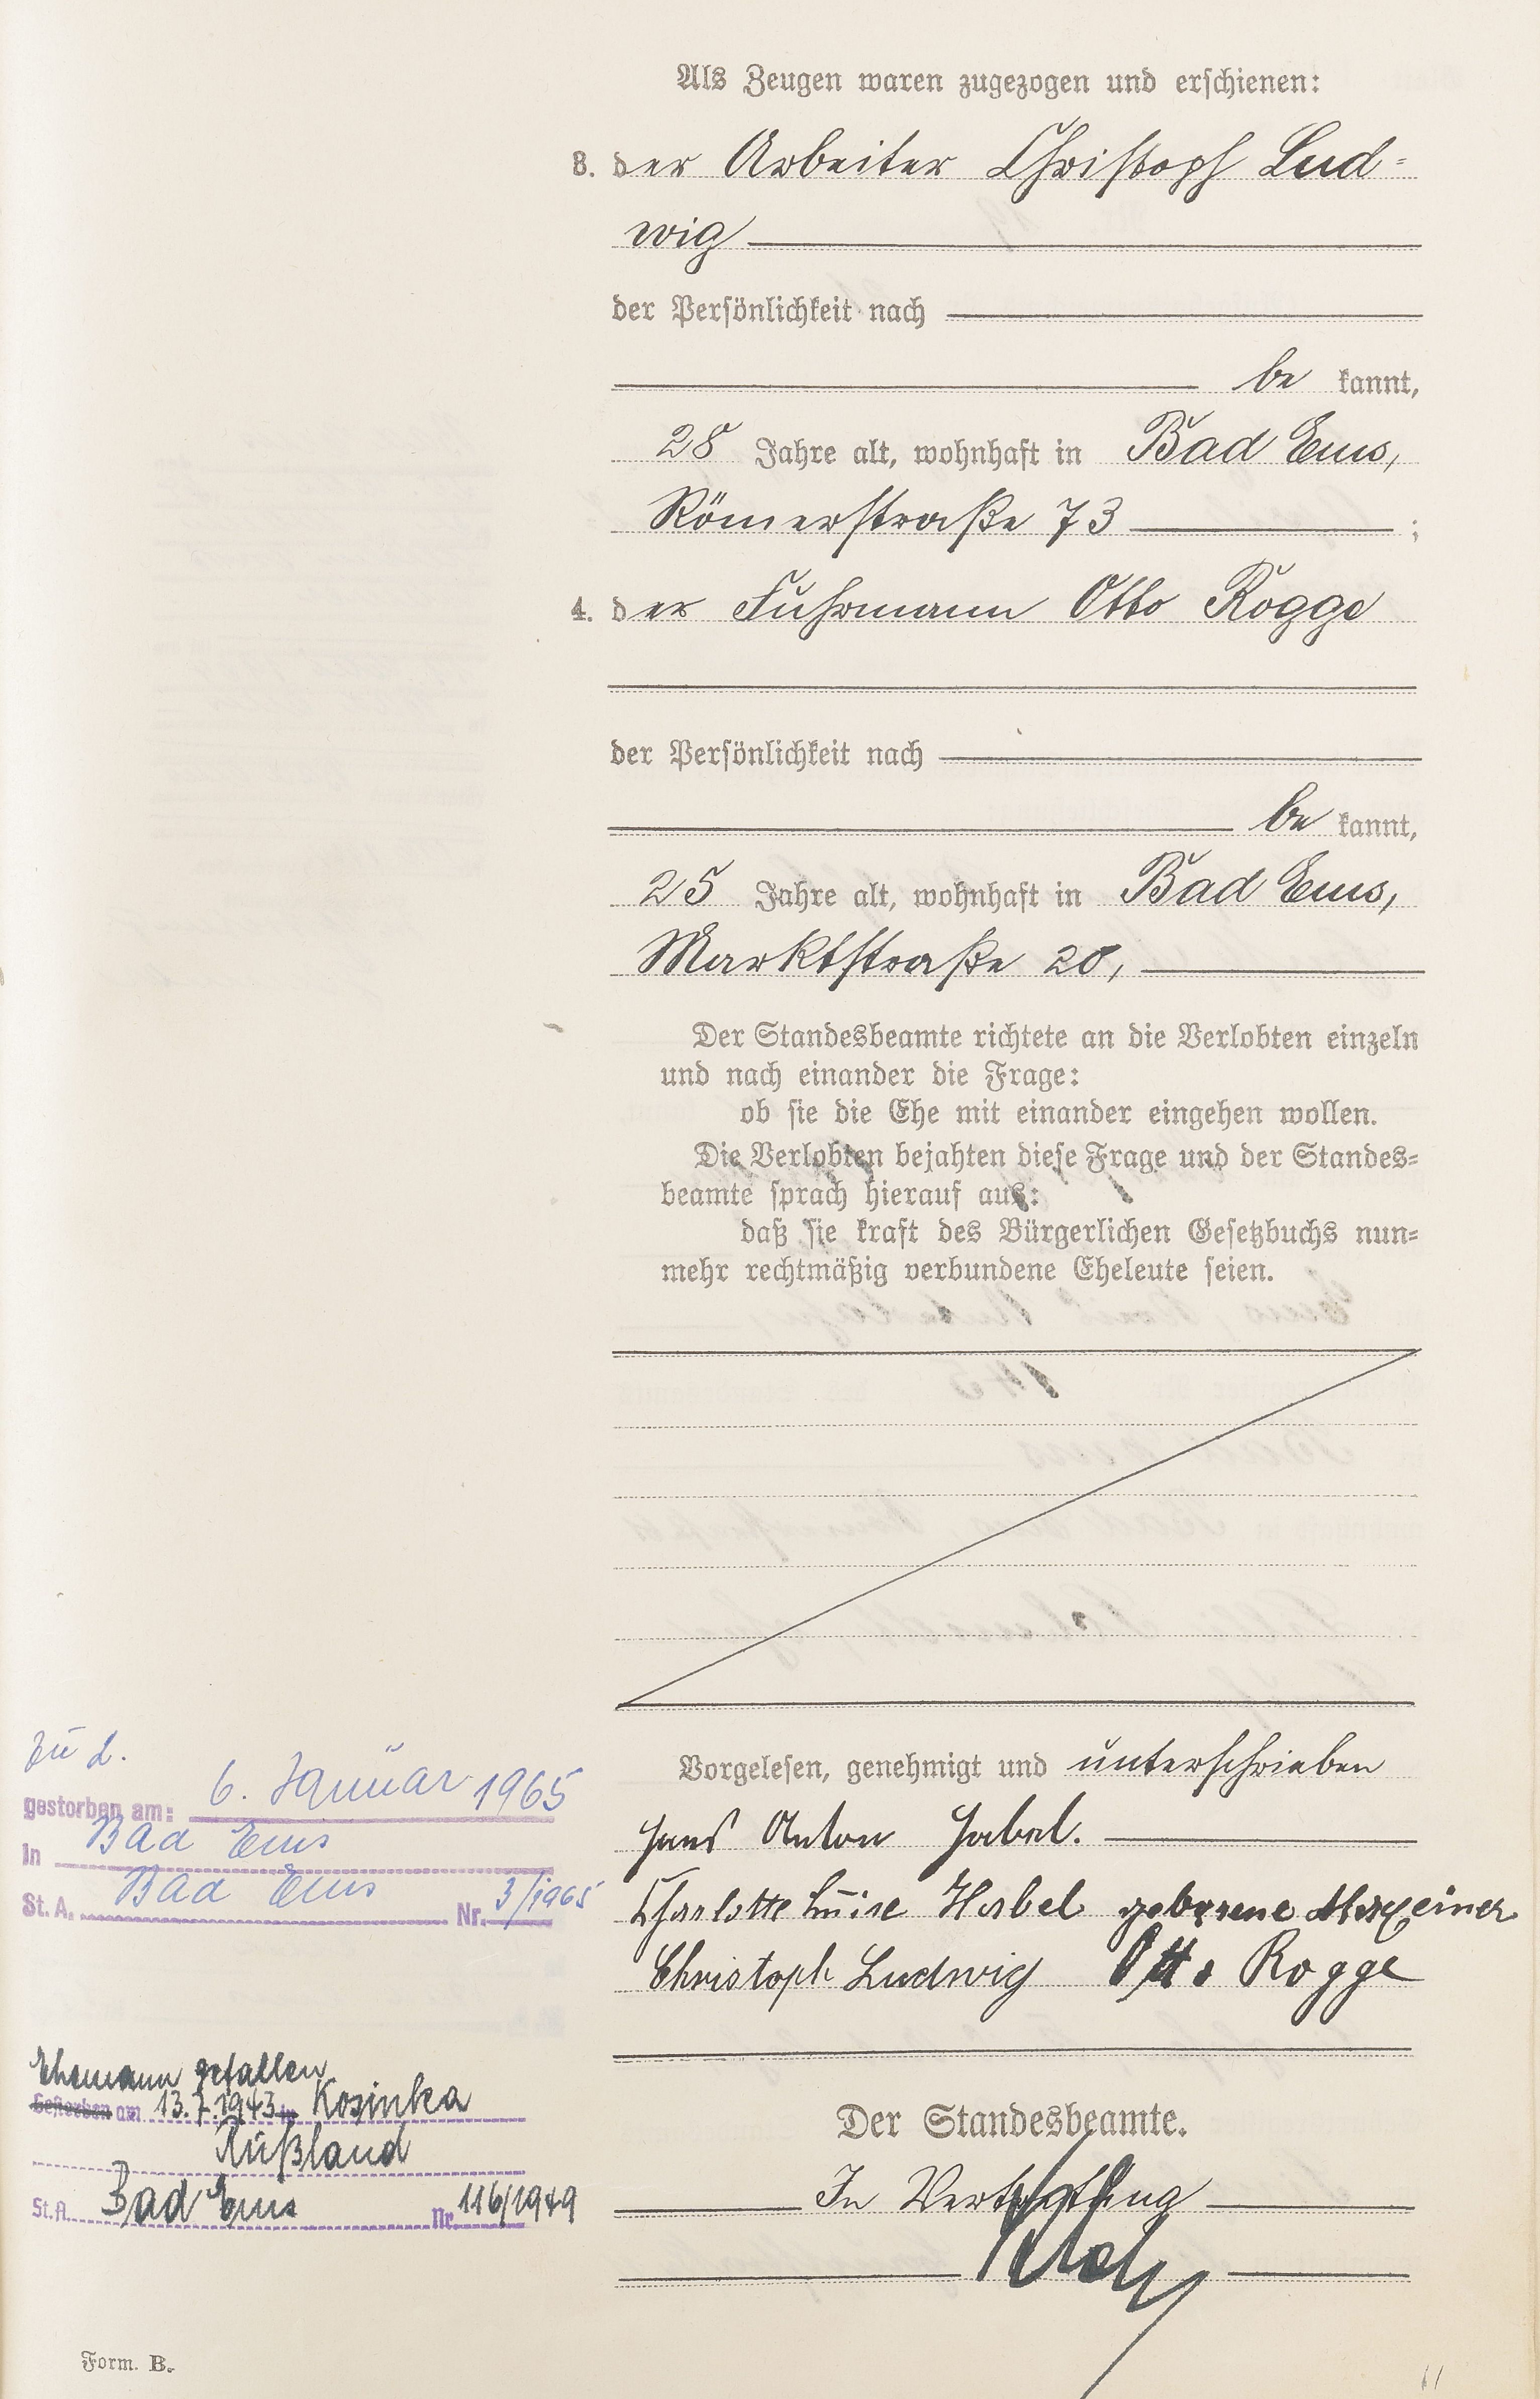 Als Zeugen waren zugezogen und erschienen:
3. der Arbeiter Christoph Lud-
wig
der Persönlichkeit nach
be kannt,
28 Jahre alt, wohnhaft in Bad Ems,
Römerstraße 73 ;
4. der Fuhrmann Otto Rogge
der Persönlichkeit nach
be kannt,
25 Jahre alt, wohnhaft in Bad Ems,
Marktstraße 20,
Der Standesbeamte richtete an die Verlobten einzeln
und nach einander die Frage:
ob sie die Ehe mit einander eingehen wollen.
Die Verlobten bejahten diese Frage und der Standes-
beamte sprach hierauf aus:
daß sie kraft des Bürgerlichen Gesetzbuchs nun-
mehr rechtmäßig verbundene Eheleute seien.
Vorgelesen, genehmigt und unterschrieben
Anton Habel.
Charlotte Luise Habel geborene
Christoph Ludwig Otto Rogge
Der Standesbeamte.
In Vertretung
zu 2.
gestorben am: 6. Januar 1965
In Bad Ems
St. A. Bad Ems Nr. 3/1965
Ehemann gefallen
Gestorben am 13.7.1943 in Kosinka
Rußland
St.A. Bad Ems Nr. 116/1949
Form. B.